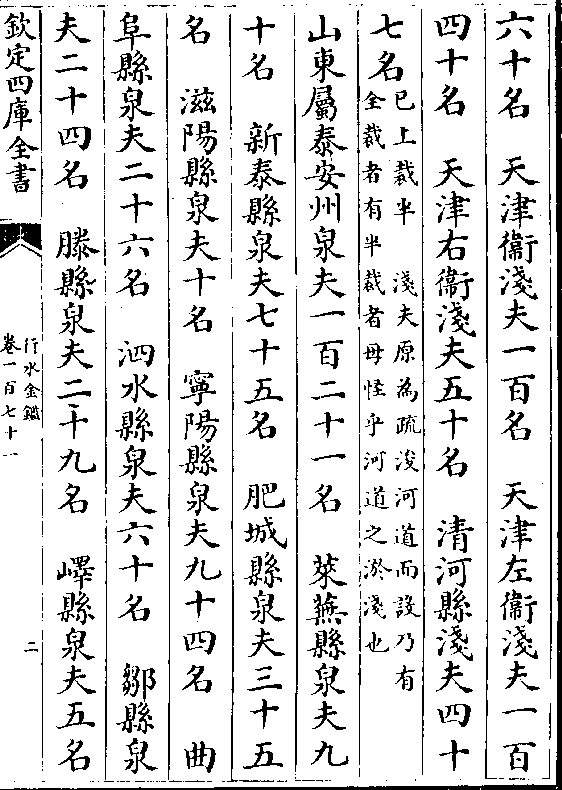 六十名　天津衞淺夫一百名　天津左衞淺夫一百
四十名　天津右衞淺夫五十名　清河縣淺夫四十
七名已上裁半　淺夫原為疏浚河道而設乃有
全裁者有半裁者毋怪乎河道之淤淺也
山東屬泰安州泉夫一百二十一名　萊蕪縣泉夫九
十名　新泰縣泉夫七十五名　肥城縣泉夫三十五
名　滋陽縣泉夫十名　寧陽縣泉夫九十四名　曲
阜縣泉夫二十六名　泗水縣泉夫六十名　鄒縣泉
夫二十四名　滕縣泉夫二十九名　嶧縣泉夫五名
欽定四庫全書
行水金鑑
卷一百七十一
二